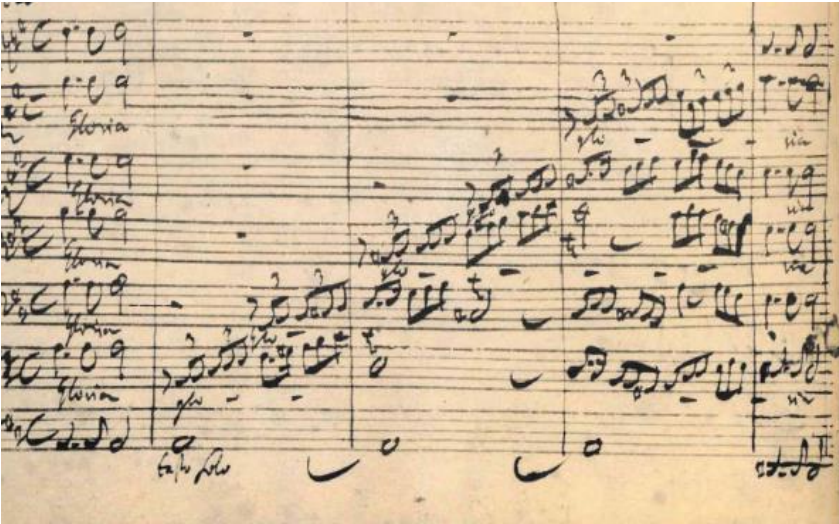 Gloria glo - - ria
Gloria ria
Gloria glo - - - - ria
Gloria glo -
Gloria glo - - ria
tasto solo